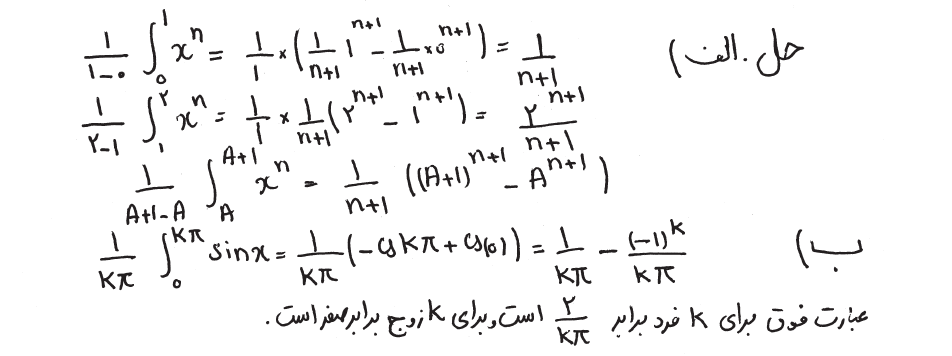 حل. الف) 1/(1-0) ∫₀¹ xⁿ = 1/1 × (1/(n+1) 1ⁿ⁺¹ - 1/(n+1) × 0ⁿ⁺¹) = 1/(n+1)
1/(۲-1) ∫₁^۲ xⁿ = 1/1 × 1/(n+1) (۲ⁿ⁺¹ - 1ⁿ⁺¹) = ۲ⁿ⁺¹/(n+1)
1/(A+1-A) ∫_A^(A+1) xⁿ = 1/(n+1) ((A+1)ⁿ⁺¹ - Aⁿ⁺¹)
ب) 1/(kπ) ∫₀^(kπ) sinx = 1/(kπ) (-cos kπ + cos(0)) = 1/(kπ) - (-1)^k/(kπ)
عبارت فوق برای k فرد برابر ۲/(kπ) است و برای k زوج برابر صفر است.